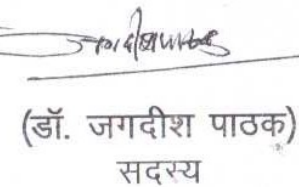 (डॉ. जगदीश पाठक)
सदस्य